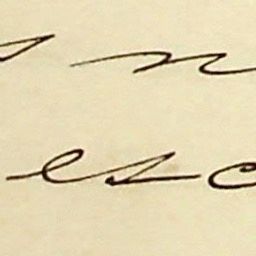 s n
esc